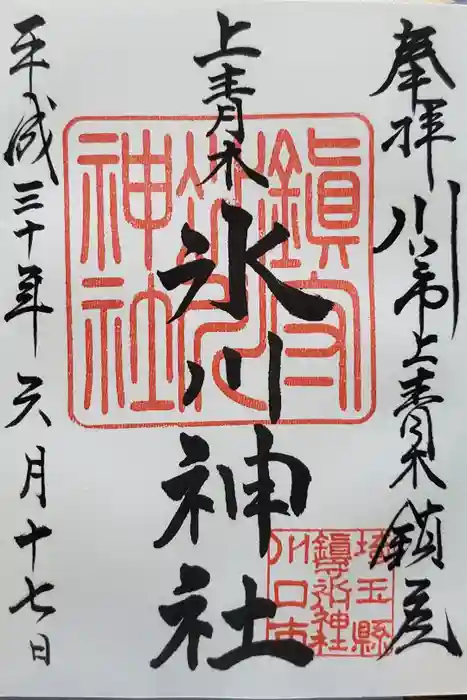 奉拝 川口市上青木鎮座
上青木
氷川神社
平成三十年六月十七日
鎮守氷川神社
埼玉縣
鎮守氷川神社
川口市